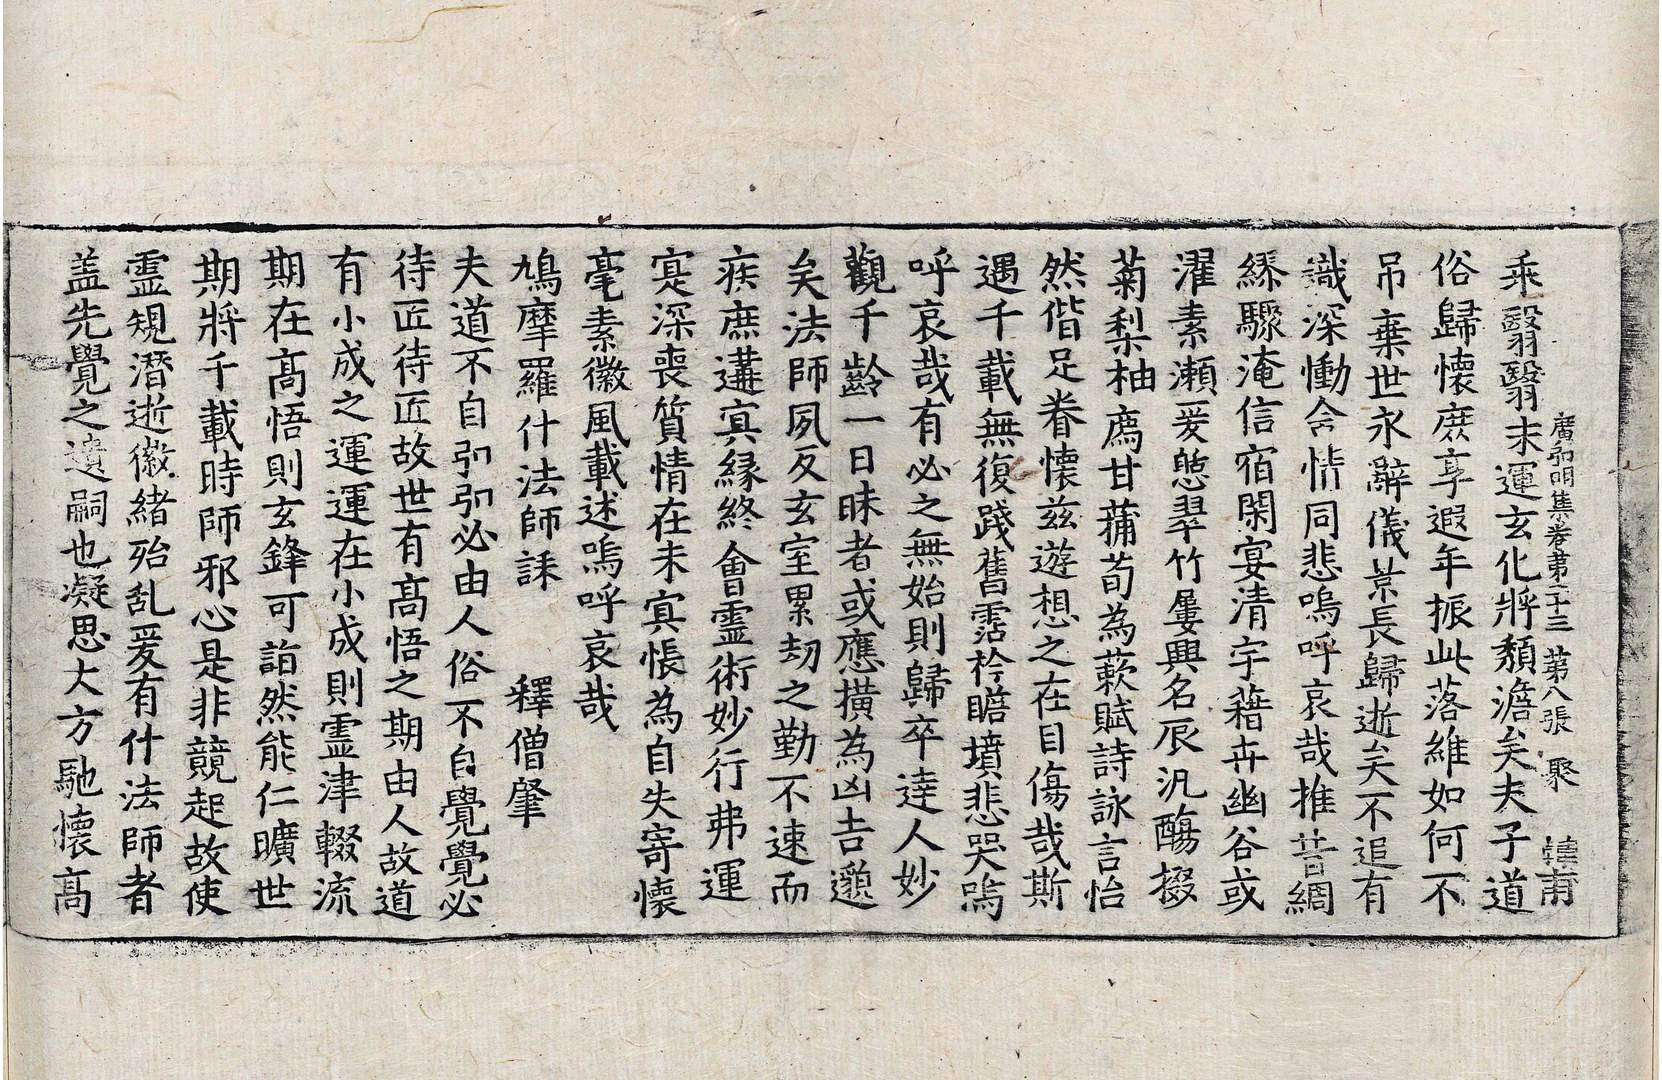 廣弘明集卷苐二十三 苐八張 聚 韓甫
乘翳翳末運玄化將頹澹矣夫子道
俗歸懷庶享遐年振此落維如何不
吊棄世永辭儀景長歸逝矣不追有
識深慟含情同悲嗚呼哀哉推昔綢
繆驟淹信宿閑宴清宇藉卉幽谷或
濯素瀨爰憩翠竹屢興名辰汎觴掇
菊梨柚薦甘蒲荀為蔌賦詩詠言怡
然偕足眷懷兹遊想之在目傷哉斯
遇千載無復踐舊霑衿瞻墳悲哭嗚
呼哀哉有必之無始則歸卒達人妙
觀千齡一日昧者或應橫為凶吉邈
矣法師夙反玄室累劫之勤不速而
疾庶遘冥緣終會霊術妙行弗運
寔深喪質情在未冥悵為自失寄懷
毫素徽風載述嗚呼哀哉
鳩摩羅什法師誄 釋僧肇
夫道不自弘弘必由人俗不自覺覺必
待匠待匠故世有髙悟之期由人故道
有小成之運運在小成則霊津輟流
期在髙悟則玄鋒可詣然能仁曠世
期將千載時師邪心是非競起故使
霊規潛逝徽緒殆乱爰有什法師者
盖先覺之遺嗣也凝思大方馳懷髙